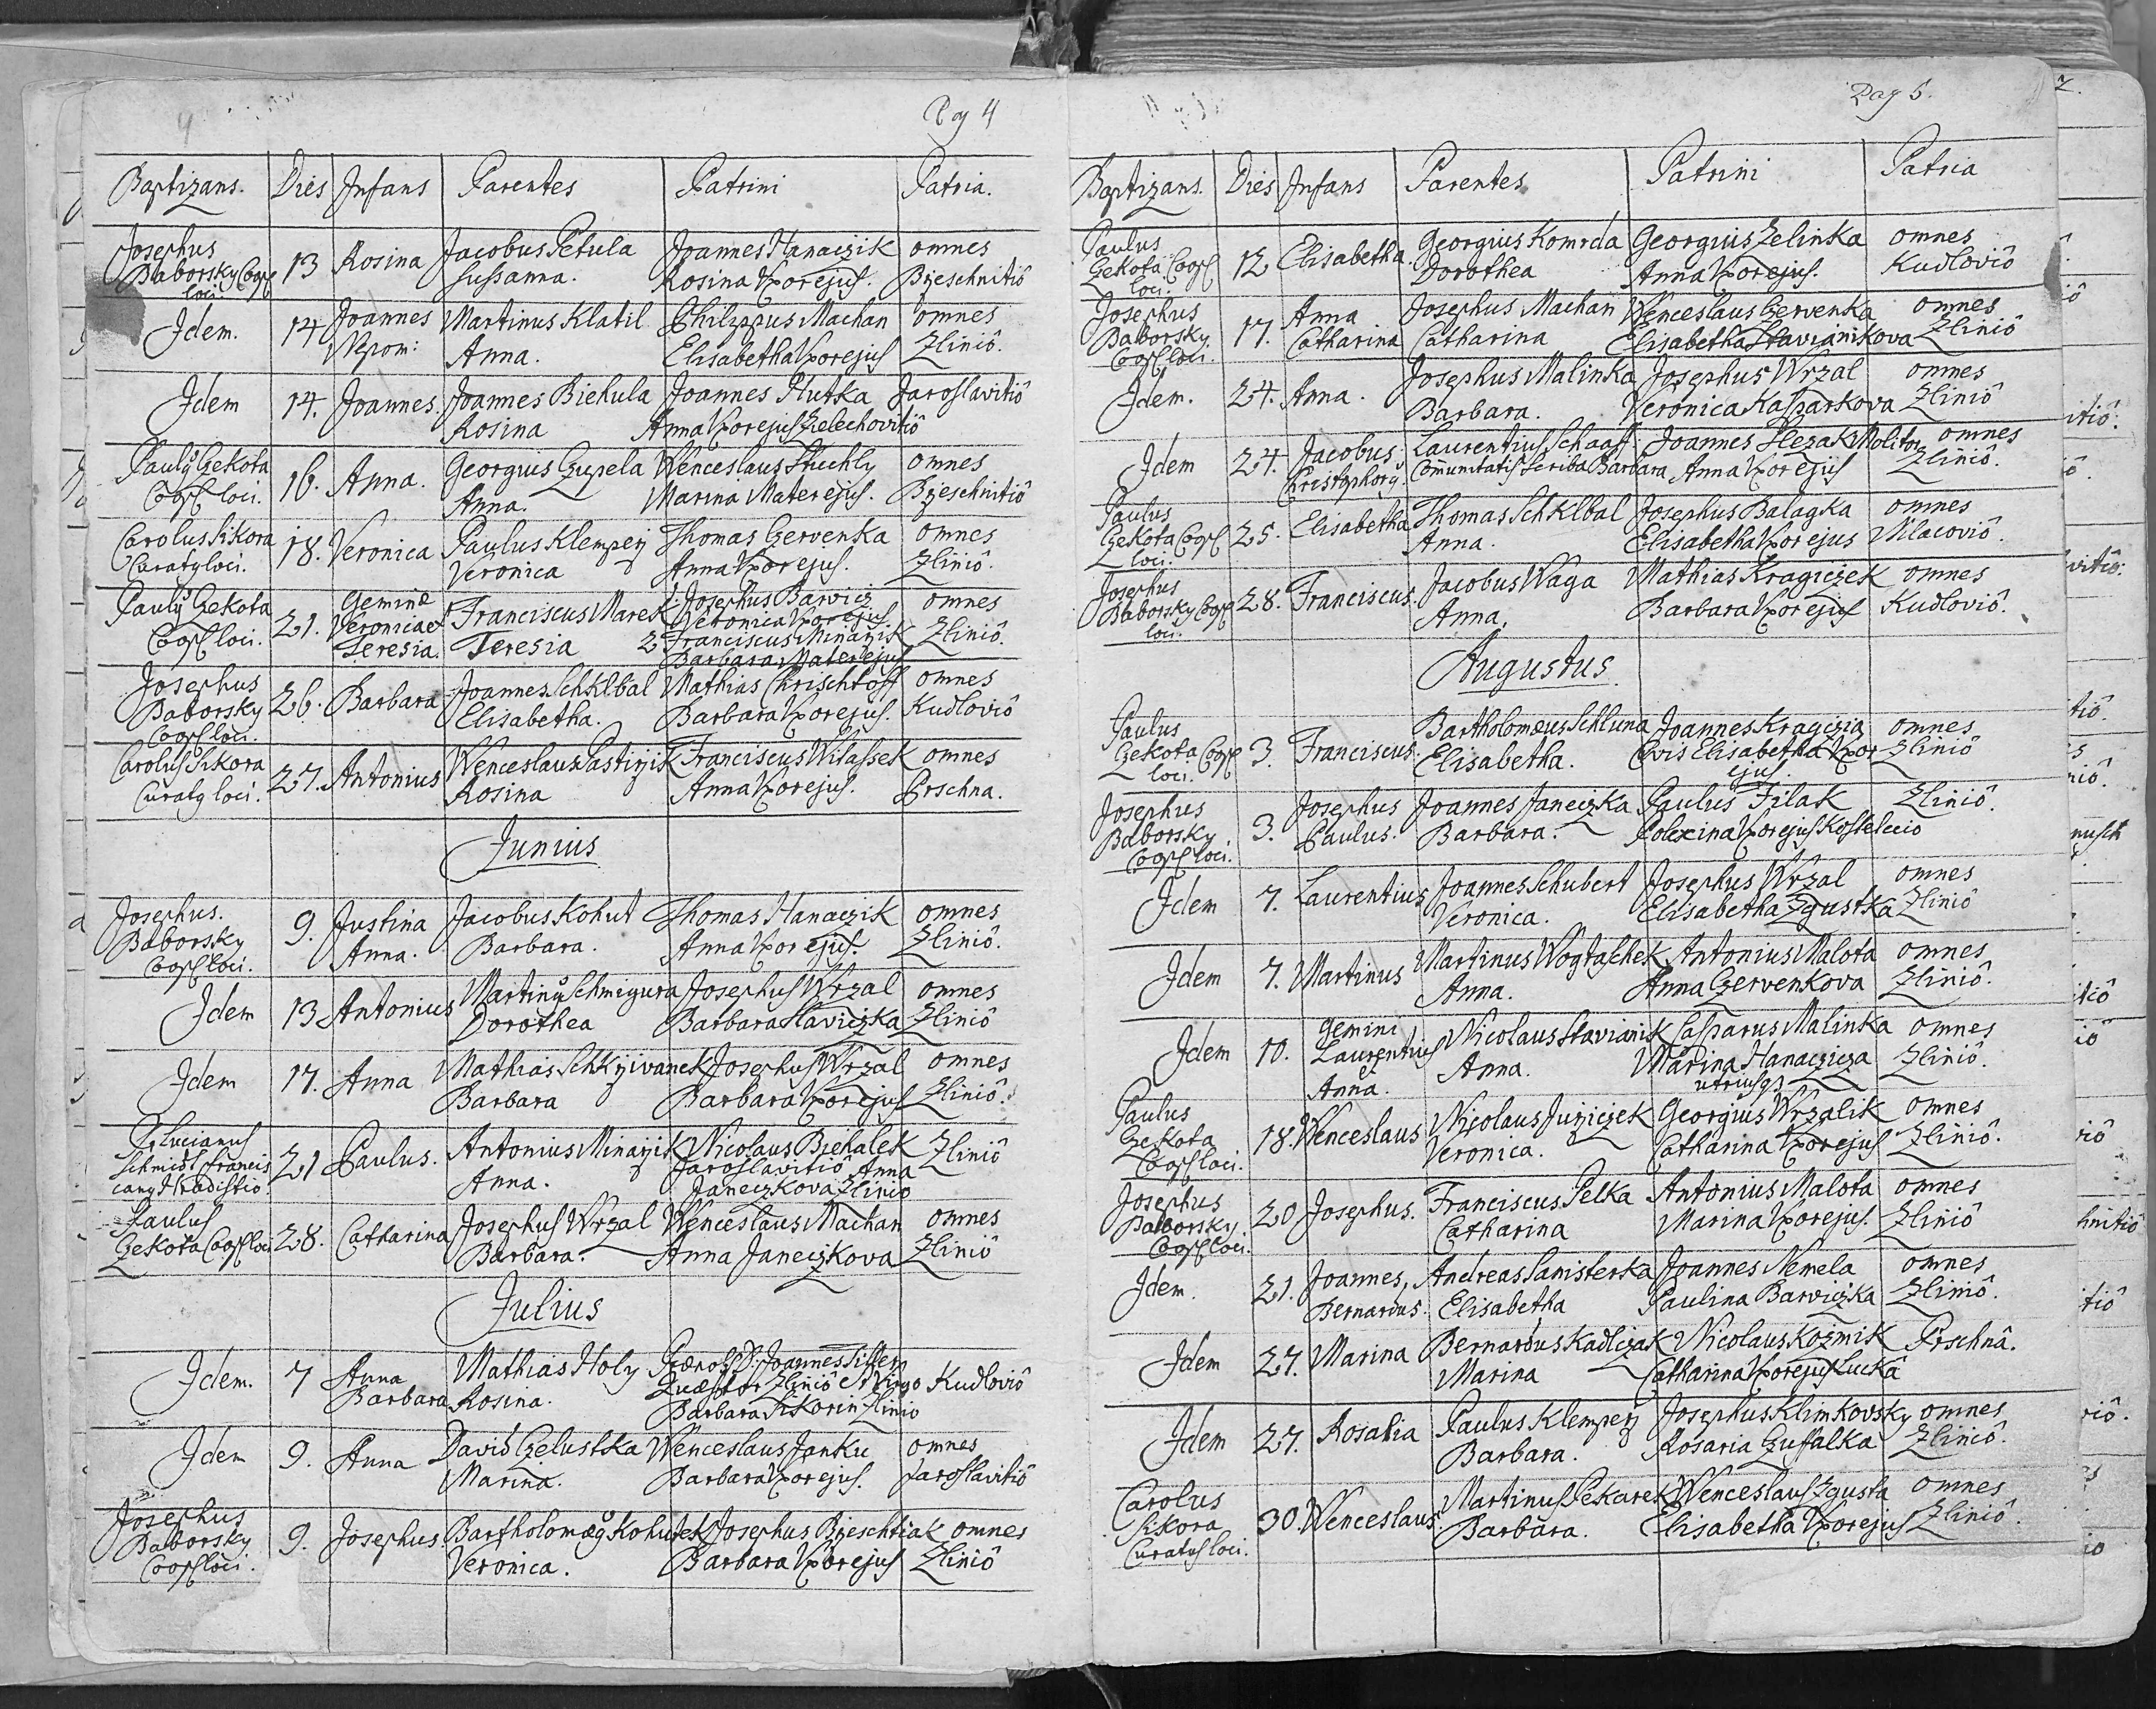 Pag 4
Baptizans. Dies Infans Parentes Patrini Patria.
Josephus Baborsky Coop loci. 13 Rosina Jacobus Petula Joannes Hanaczik omnes
Sussanna. Rosina Uxor ejus. Brzeschnitiô
Idem. 14 Joannes Martinus Klatil Philippus Machan omnes
Nepom: Anna. Elisabetha Uxor ejus Zliniô.
Idem 14. Joannes. Joannes Biehula Joannes Hutka Jaroslavitiô
Rosina Anna Uxor ejus Zelechovitiô
Paulus Gekota 16. Anna. Georgius Czepela Wenceslaus Stuchly omnes
Coop loci. Anna. Marina Mater ejus. Brzeschnitiô
Carolus Sikora 18. Veronica Paulus Klemperz Thomas Gervenka omnes
Curatus loci. Veronica Anna Uxor ejus. Zliniô.
Paulus Gekota 21. Geminae Franciscus Marek Josephus Barvicz omnes
Coop loci. Veronica et Teresia Veronica Uxor ejus. Zliniô.
Teresia. 2 Franciscus Minarzik
Barbara Mater ejus
Josephus 26. Barbara Joannes Schklbal Mathias Chrischtoff omnes
Baborsky Elisabetha. Barbara Uxor ejus. Kudloviô
Coop loci.
Carolus Sikora 27. Antonius Wenceslaus Pastirzik Franciscus Witassek omnes
Curatus loci. Rosina Anna Uxor ejus. Prschna.
Junius
Josephus. 9. Justina Jacobus Kohut Thomas Hanaczik omnes
Baborsky Anna. Barbara. Anna Uxor ejus. Zliniô.
Coop loci.
Idem 13 Antonius Martinus Schmigura Josephus Wrzal omnes
Dorothea Barbara Slaviczka Zliniô
Idem 17. Anna Mathias Schkrzivanek Josephus Wrzal omnes
Barbara Barbara Uxor ejus Zliniô.
P. Lucianus 21 Paulus. Antonius Minarzik Nicolaus Biehalek Zliniô
Schmidt Francis Anna. Jaroslavitiô Anna
canus Hradistio. Janeczkova Zlinio
Paulus 28. Catharina Josephus Wrzal Wenceslaus Machan omnes
Gekota Coop loci Barbara. Anna Janeczkova Zliniô
Julius
Idem. 7 Anna Mathias Holy Joannes
Barbara Rosina. Quaestor Zliniô et Virgo Kudloviô
Barbara Sikorin Zlinio
Idem 9. Anna David Czelustka Wenceslaus Janku omnes
Marina. Barbara Uxor ejus. Jaroslavitiô
Josephus 9. Josephus Bartholomaeus Kohutek Josephus Brzeschtiak omnes
Baborsky Veronica. Barbara Uxor ejus Zliniô
Coop loci.
Pag 5.
Baptizans. Dies Infans Parentes Patrini Patria
Paulus 12 Elisabetha Georgius Komrda Georgius Zelinka omnes
Gekota Coop Dorothea Anna Uxor ejus. Kudloviô
loci.
Josephus 17. Anna Josephus Machan Wenceslaus Gervenka omnes
Baborsky Catharina Catharina Elisabetha Stavianikova Zliniô
Coop loci.
Idem. 24. Anna. Josephus Malinka Josephus Wrzal omnes
Barbara. Veronica Kasparkova Zliniô
Idem 24. Jacobus Laurentius Schaaff Joannes Slezak Molitor omnes
Christophorus. Comunitatis Scriba Barbara Anna Uxor ejus Zliniô.
Paulus 25. Elisabetha Thomas Schklbal Josephus Balagka omnes
Gekota Coop Anna. Elisabetha Uxor ejus Mlacoviô.
loci.
Josephus 28. Franciscus. Jacobus Waga Mathias Kragiczek omnes
Baborsky Coop Anna. Barbara Uxor ejus Kudloviô.
loci.
Augustus
Paulus 3. Franciscus. Bartholomaeus Schluna Joannes Kragczia omnes
Gekota Coop Elisabetha. Civis Elisabetha Uxor Zliniô
loci. ejus.
Josephus 3. Josephus Joannes Janeczka Paulus Filak Zliniô.
Baborsky Paulus. Barbara. Polexina Uxor ejus Kostelecio
Coop loci.
Idem 7. Laurentius Joannes Schubert Josephus Wrzal omnes
Veronica. Elisabetha Zgustka Zliniô
Idem 7. Martinus Martinus Wogtaschek Antonius Malota omnes
Anna. Anna Gervenkova Zliniô.
Idem 10. gemini Nicolaus Stavianik Casparus Malinka omnes
Laurentius Anna. Marina Hanaczicza Zliniô.
et Anna. utriusqz
Paulus 18. Wenceslaus Nicolaus Jurziczek Georgius Wrzalik omnes
Gekota Veronica. Catharina Uxor ejus Zliniô.
Coop loci.
Josephus 20 Josephus. Franciscus Pelka Antonius Malota omnes
Baborsky Catharina Marina Uxor ejus. Zliniô
Coop loci.
Idem. 21. Joannes, Andreas Samisterka Joannes Nemela omnes
Bernardus. Elisabetha Paulina Barviczka Zliniô.
Idem 27. Marina Bernardus Kadlczak Nicolaus Kozmik Prschnâ.
Marina Catharina Uxor ejus Luckâ
Idem 27. Rosalia Paulus Klemperz Josephus Klimkovsky omnes
Barbara. Rosaria Czuffalka Zliniô.
Carolus 30. Wenceslaus. Martinus Pekarek Wenceslaus Zgusta omnes
Sikora Barbara. Elisabetha Uxor ejus Zliniô.
Curatus loci.